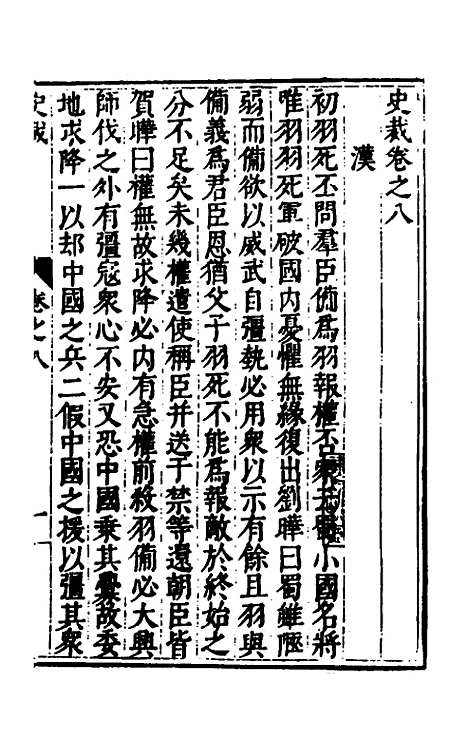 史裁卷之八
漢
初羽死丕問羣臣備為羽報權否衆小國名將
唯羽羽死軍破國内憂懼無緣復出劉曄曰蜀雖陿
弱而備欲以威武自彊埶必用衆以示有餘且羽與
備義為君臣恩猶父子羽死不能為報敵於終始之
分不足矣未幾權遣使稱臣并送于禁等還朝臣皆
賀曄曰權無故求降必内有急權前殺羽備必大興
師伐之外有彊寇衆心不安又恐中國乗其釁故委
地求降一以却中國之兵二假中國之援以彊其衆
史裁
卷之八
一